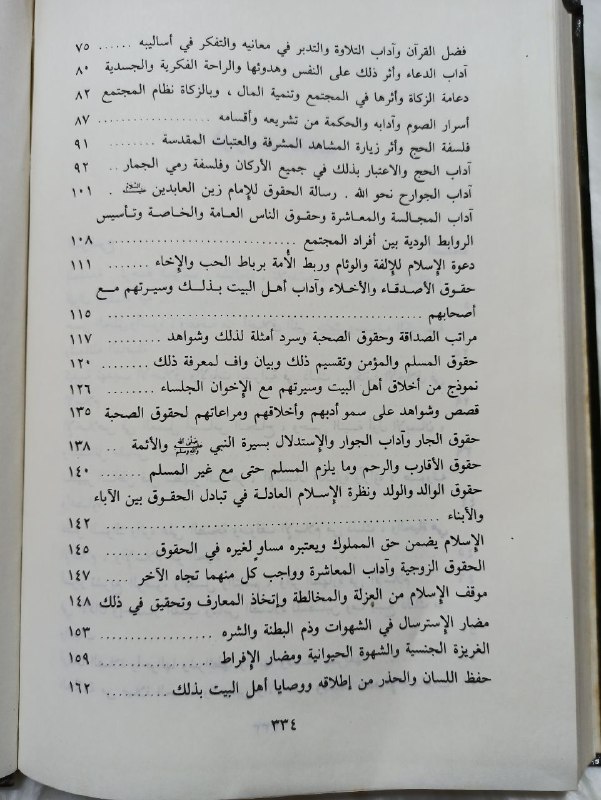 فضل القرآن وآداب التلاوة والتدبر في معانيه والتفكر في أساليبه ...... ٧٥
آداب الدعاء وأثر ذلك على النفس وهدوئها والراحة الفكرية والجسدية ٨٠
دعامة الزكاة وأثرها في المجتمع وتنمية المال ، وبالزكاة نظام المجتمع ٨٢
أسرار الصوم وآدابه والحكمة من تشريعه وأقسامه .................. ٨٧
فلسفة الحج وأثر زيارة المشاهد المشرفة والعتبات المقدسة .......... ٩١
آداب الحج والاعتبار بذلك في جميع الأركان وفلسفة رمي الجمار .. ٩٢
آداب الجوارح نحو الله . رسالة الحقوق للإمام زين العابدين عليه السلام . ١٠١
آداب المجالسة والمعاشرة وحقوق الناس العامة والخاصة وتأسيس
الروابط الودية بين أفراد المجتمع .............................. ١٠٨
دعوة الإسلام للإلفة والوئام وربط الأمة برباط الحب والإخاء ....... ١١١
حقوق الأصدقاء والأخلاء وآداب أهل البيت بذلك وسيرتهم مع
أصحابهم .................................................. ١١٥
مراتب الصداقة وحقوق الصحبة وسرد أمثلة لذلك وشواهد .......... ١١٧
حقوق المسلم والمؤمن وتقسيم ذلك وبيان واف لمعرفة ذلك ........ ١٢٠
نموذج من أخلاق أهل البيت وسيرتهم مع الإخوان الجلساء ........ ١٢٦
قصص وشواهد على سمو أدبهم وأخلاقهم ومراعاتهم لحقوق الصحبة ١٣٥
حقوق الجار وآداب الجوار والإستدلال بسيرة النبي صلى الله عليه وسلم والأئمة .. ١٣٨
حقوق الأقارب والرحم وما يلزم المسلم حتى مع غير المسلم ....... ١٤٠
حقوق الوالد والولد ونظرة الإسلام العادلة في تبادل الحقوق بين الآباء
والأبناء .................................................. ١٤٢
الإسلام يضمن حق المملوك ويعتبره مساوٍ لغيره في الحقوق ....... ١٤٥
الحقوق الزوجية وآداب المعاشرة وواجب كل منهما تجاه الآخر .... ١٤٧
موقف الإسلام من العزلة والمخالطة وإتخاذ المعارف وتحقيق في ذلك ١٤٨
مضار الإسترسال في الشهوات وذم البطنة والشره .................. ١٥٣
الغريزة الجنسية والشهوة الحيوانية ومضار الإفراط ................. ١٥٩
حفظ اللسان والحذر من إطلاقه ووصايا أهل البيت بذلك .......... ١٦٢
٣٣٤